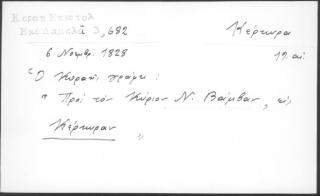 Κοραη Επιστολ Κέρκυρα
Εκδ Δαμαλᾶ 3,682
6 Νοεμβρ. 1828 19. αἰ.
Ὁ Κοραῆς γράφει:
"Πρὸς τὸν Κύριον Ν. Βάμβαν, εἰς
Κέρκυραν "